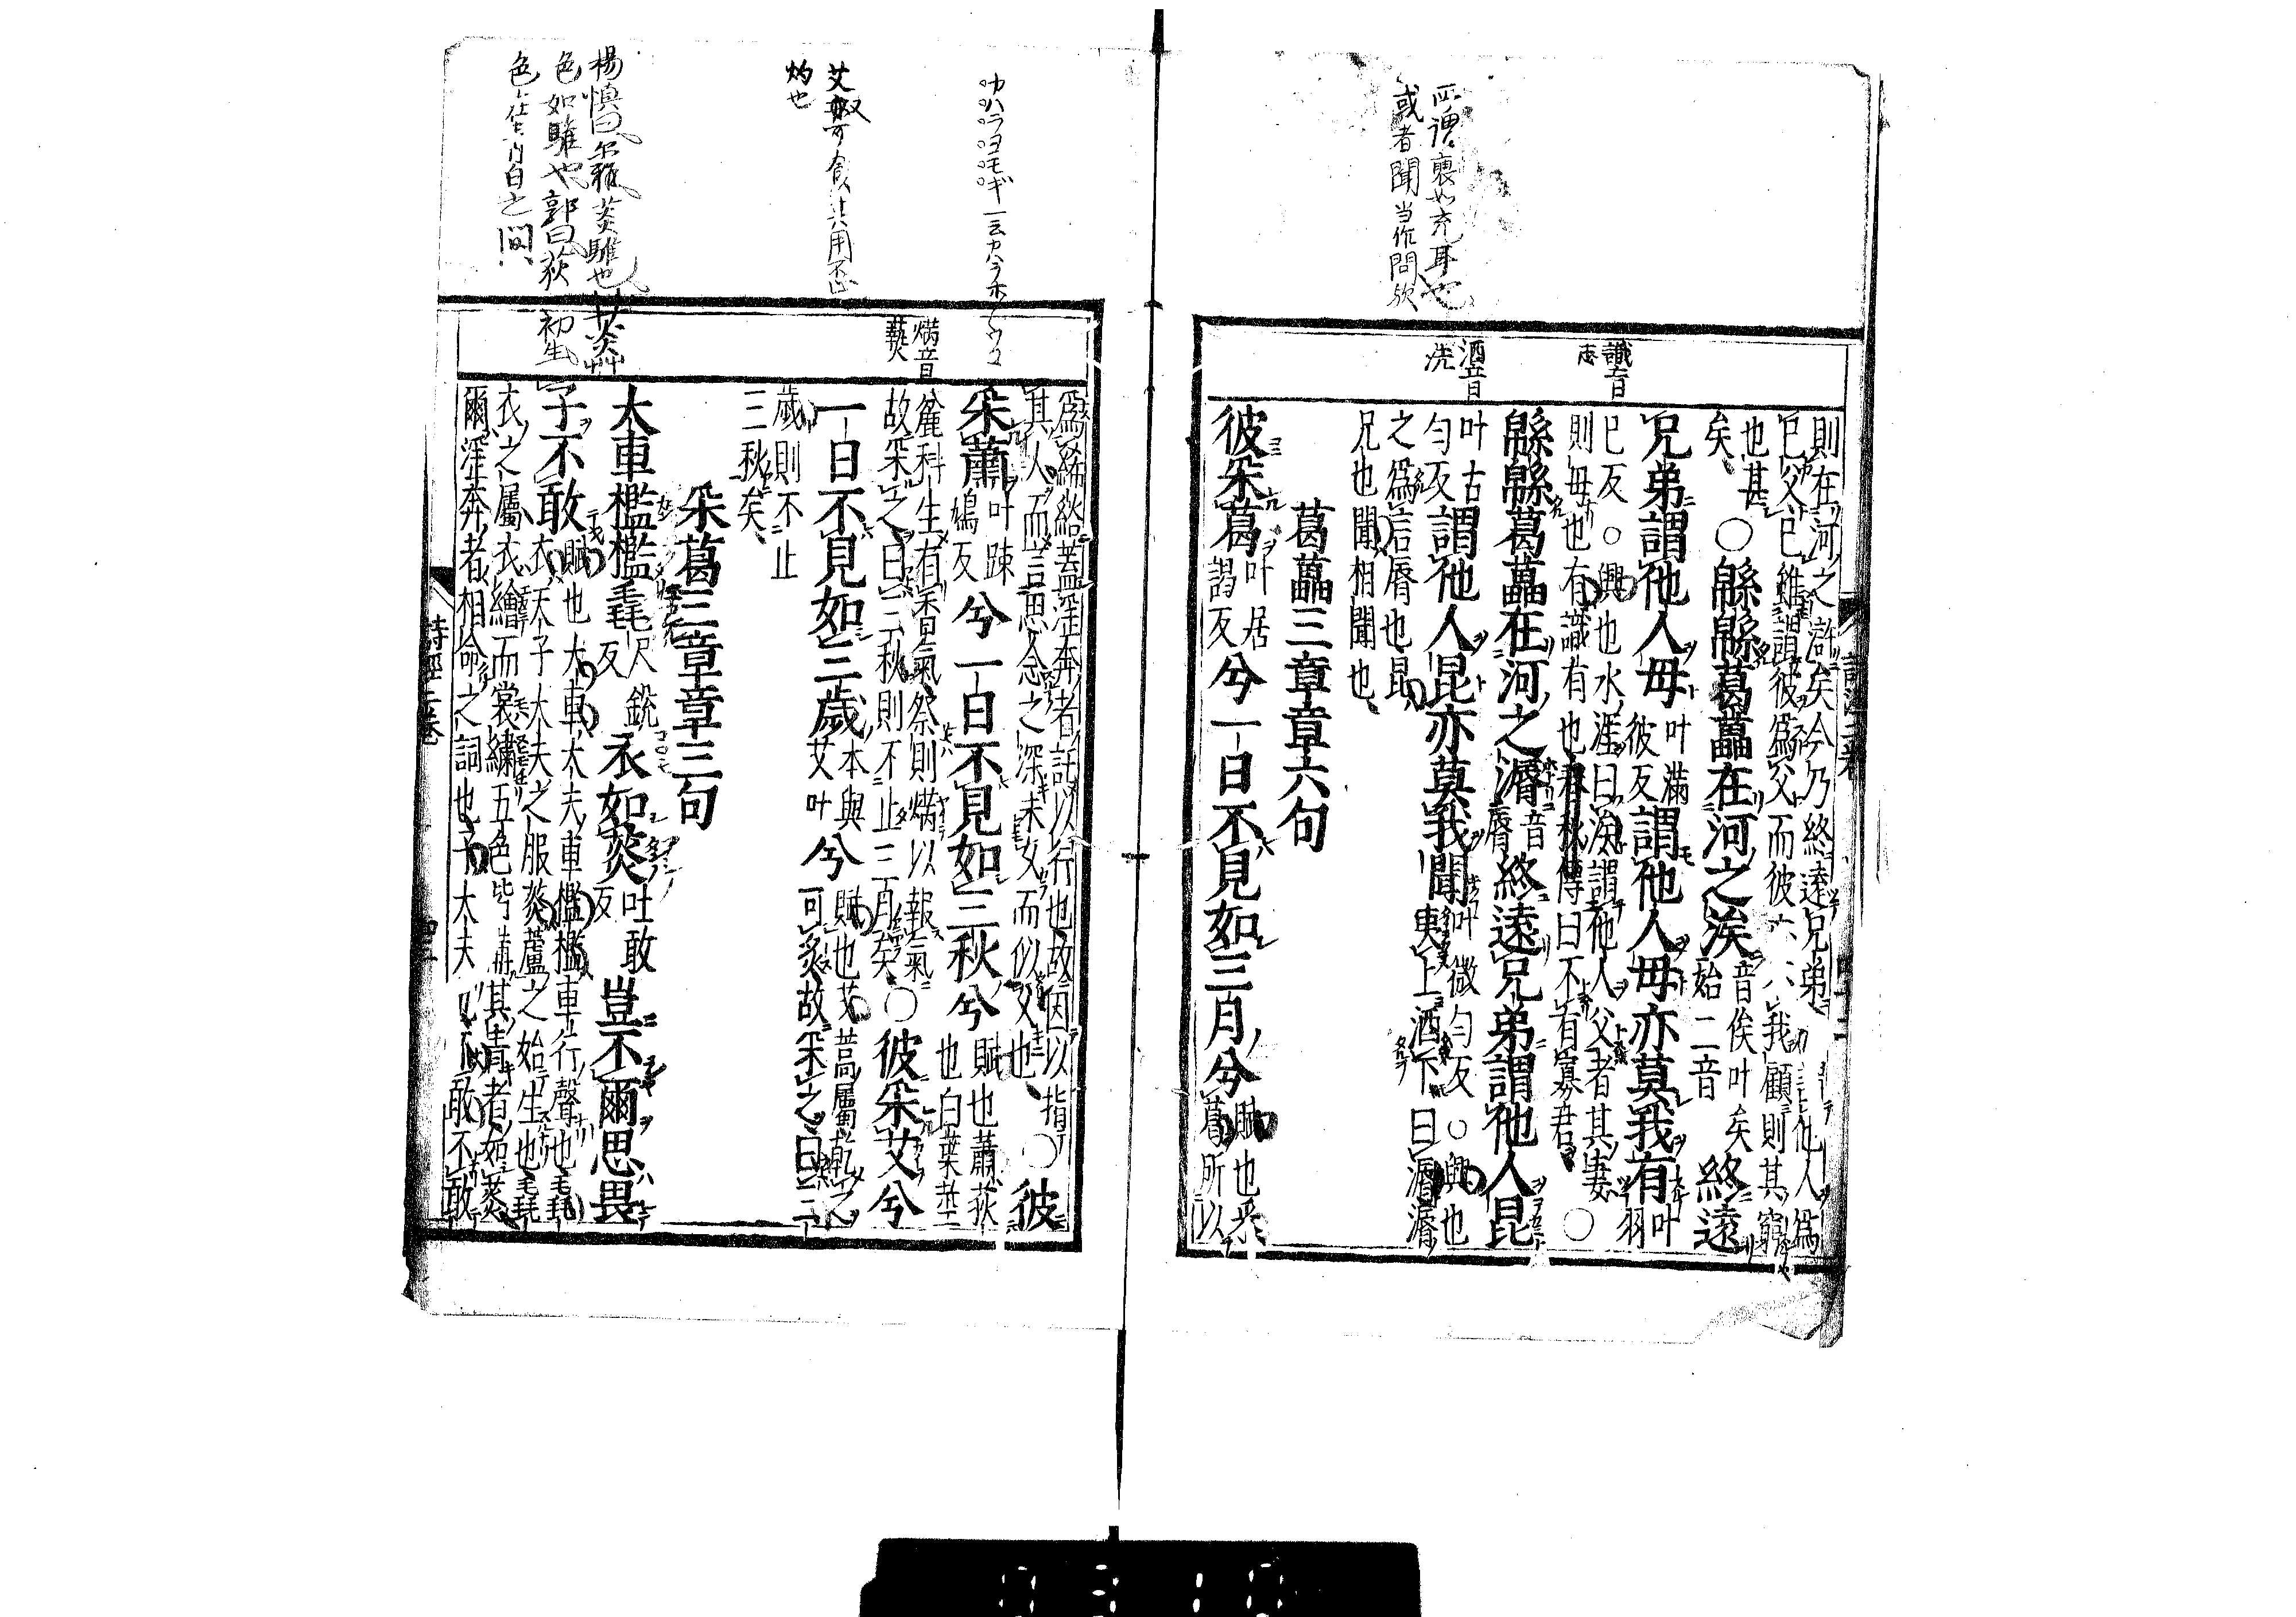 或者聞当作問欤
讖音
志
洒音
洗
則在河之滸矣今乃終遠兄弟而謂他人爲
已父已雖謂彼爲父而彼亦不我顧則其窮
也甚
矣○緜緜葛藟在河之涘音俟叶矣始二音終遠
兄弟謂他人母叶滿彼反謂他人母亦莫我有叶羽
已反○興也水涯曰涘謂他人父者其妻
則母也有識有也春秋傳曰不有寡君○
緜緜葛藟在河之漘音脣終遠兄弟謂他人昆
叶古勻反謂他人昆亦莫我聞叶微勻反○興也
夷上洒下曰漘漘
之爲言脣也昆
兄也聞相聞也
葛藟三章章六句
彼采葛叶居謁反兮一日不見如三月兮賦也采葛所以
爲絺綌蓋淫奔者託以行也故因以指
其人而言思念之深未久而似久也○彼
采蕭叶疎鳩反兮一日不見如三秋兮賦也蕭荻也白葉莖
麄科生有香氣祭則焫以報氣
故采之曰三秋則不止三月矣○彼采艾兮
一日不見如三歲本與艾叶兮賦也艾蒿屬乾之可灸故采之曰三
歲則不止
三秋矣
采葛三章章三句
大車檻檻毳尺銳反衣如菼吐敢反豈不爾思畏
子不敢賦也大車大夫車檻檻車行聲也毳
衣天子大夫之服菼蘆之始生也毳
衣之屬衣繪而裳繡五色皆備其靑者如菼
爾淫奔者相命之詞也子大夫也不敢不敢
焫音
爇
艾葉可食其用不止
灼也
楊慎曰尔雅菼騅也菼艸
色如騅也郭曰菼初生
色在青白之間
詩經二卷